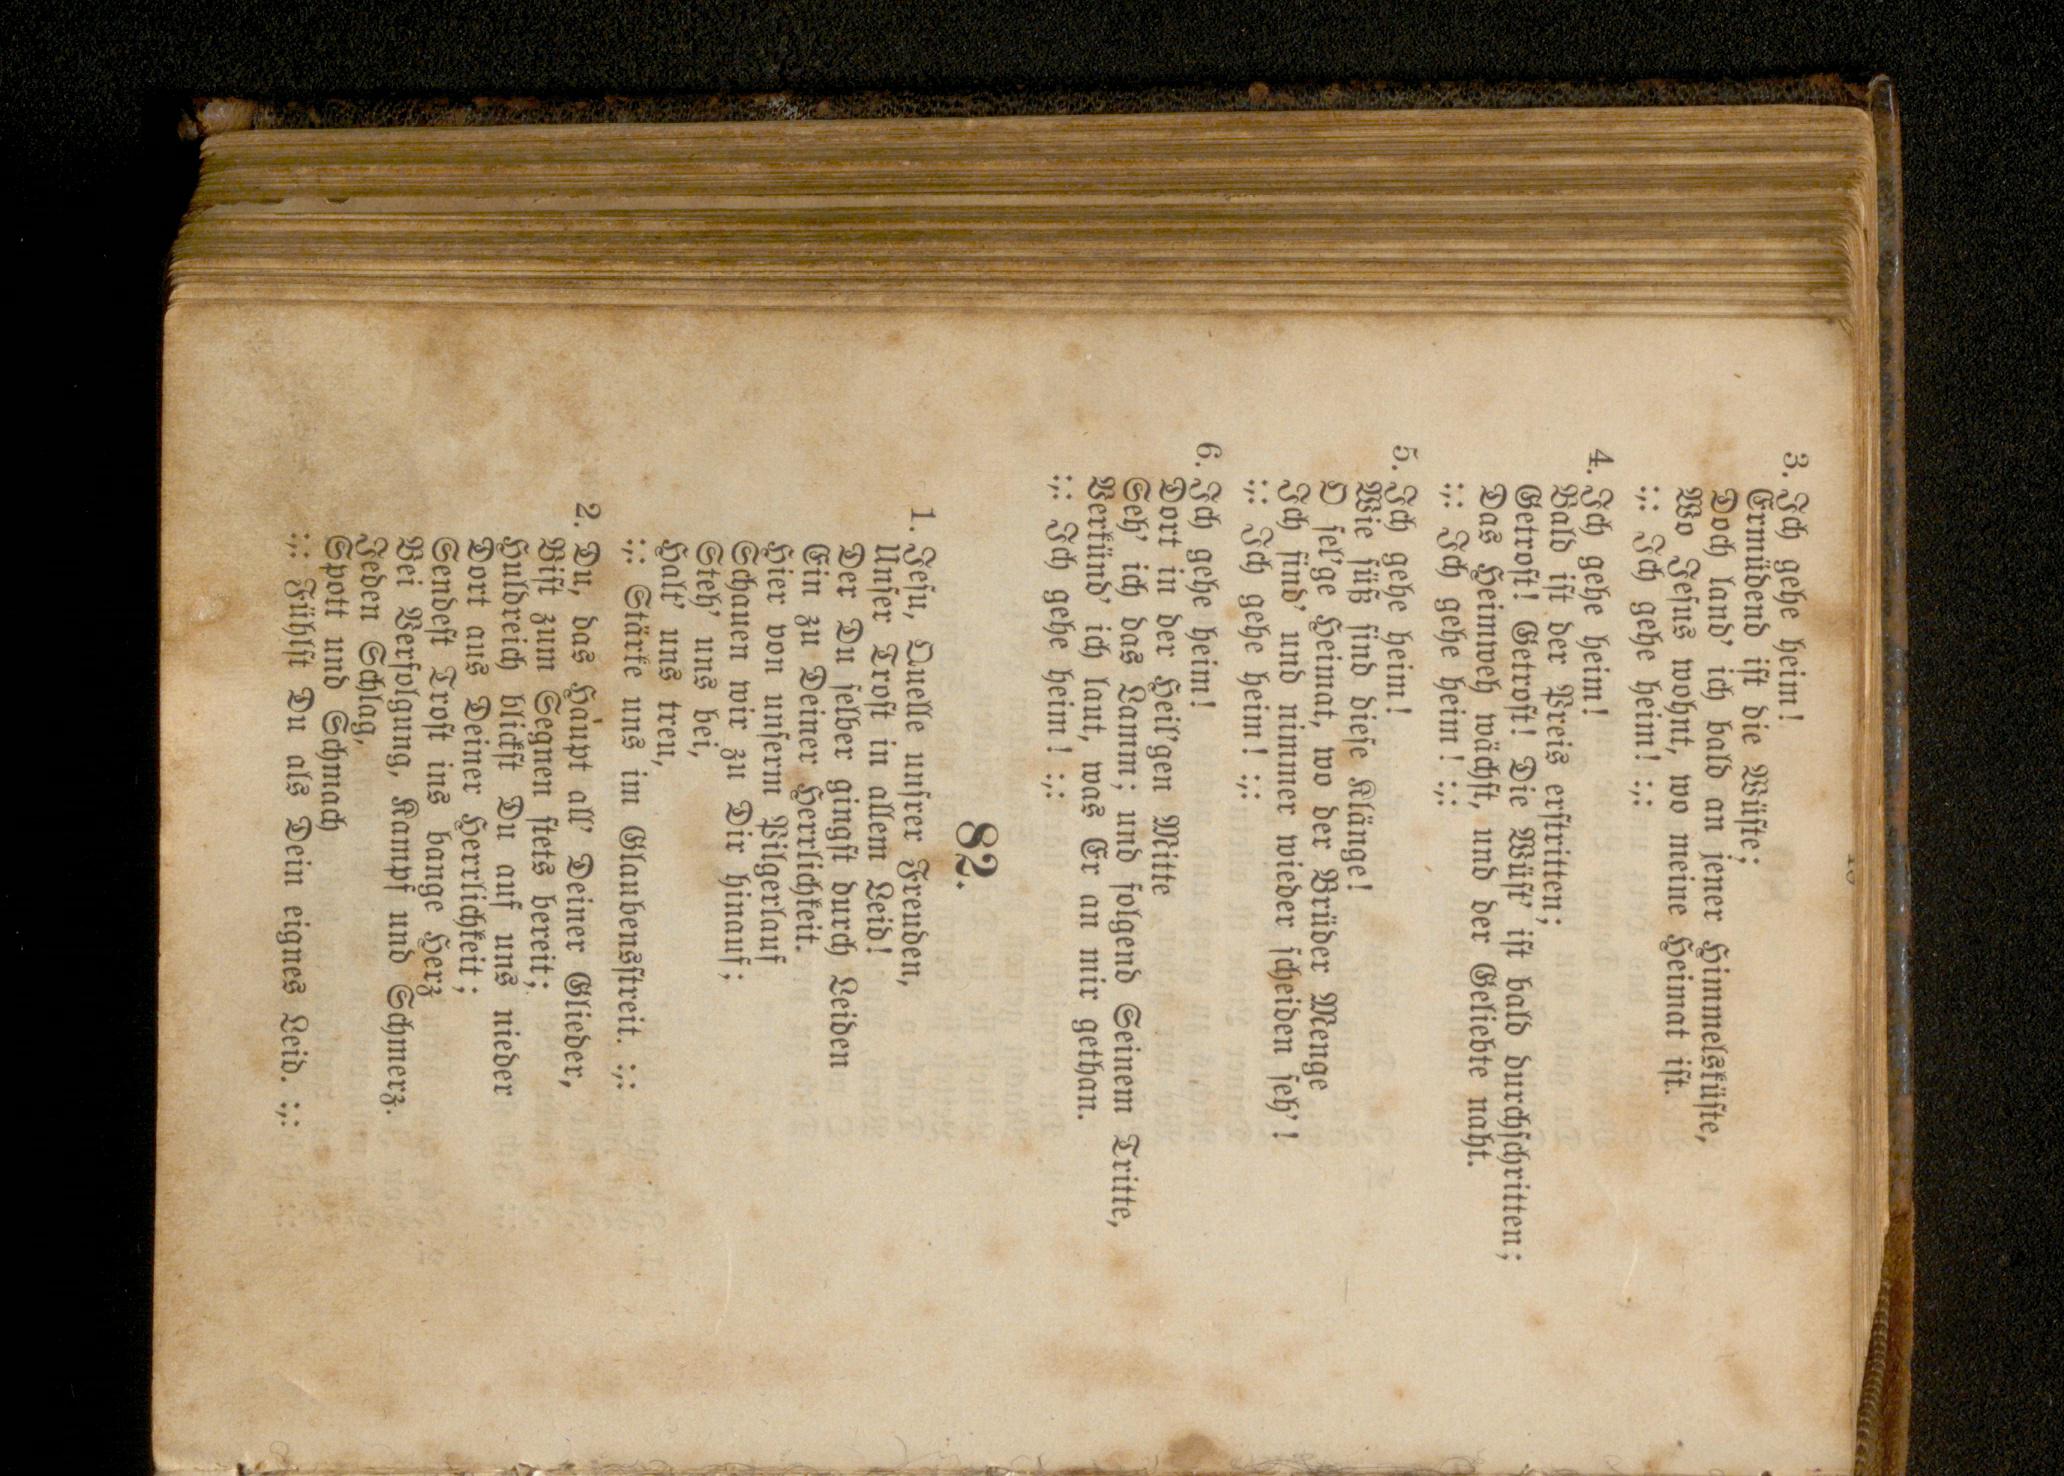 3. Ich gehe heim!
Ermüdend ist die Wüste;
Doch land' ich bald an jener Himmelsküste,
Wo Jesus wohnt, wo meine Heimat ist.
:,: Ich gehe heim! :,:
4. Ich gehe heim!
Bald ist der Preis erstritten;
Getrost! Getrost! Die Wüst' ist bald durchschritten;
Das Heimweh wächst, und der Geliebte naht.
:,: Ich gehe heim! :,:
5. Ich gehe heim!
Wie süß sind diese Klänge!
O sel'ge Heimat, wo der Brüder Menge
Ich find' und nimmer wieder scheiden seh'!
:,: Ich gehe heim! :,:
6. Ich gehe heim!
Dort in der Heil'gen Mitte
Seh' ich das Lamm; und folgend Seinem Tritte,
Verkünd' ich laut, was Er an mir gethan.
:,: Ich gehe heim! :,:
82.
1. Jesu, Quelle unsrer Freuden,
Unser Trost in allem Leid!
Der Du selber gingst durch Leiden
Ein zu Deiner Herrlichkeit.
Hier von unserm Pilgerlauf
Schauen wir zu Dir hinauf;
Steh' uns bei,
Halt' uns treu,
:,: Stärke uns im Glaubensstreit. :,:
2. Du, das Haupt all' Deiner Glieder,
Bist zum Segnen stets bereit;
Huldreich blickst Du auf uns nieder
Dort aus Deiner Herrlichkeit;
Sendest Trost ins bange Herz
Bei Verfolgung, Kampf und Schmerz.
Jeden Schlag,
Spott und Schmach
:,: Fühlst Du als Dein eignes Leid. :,: